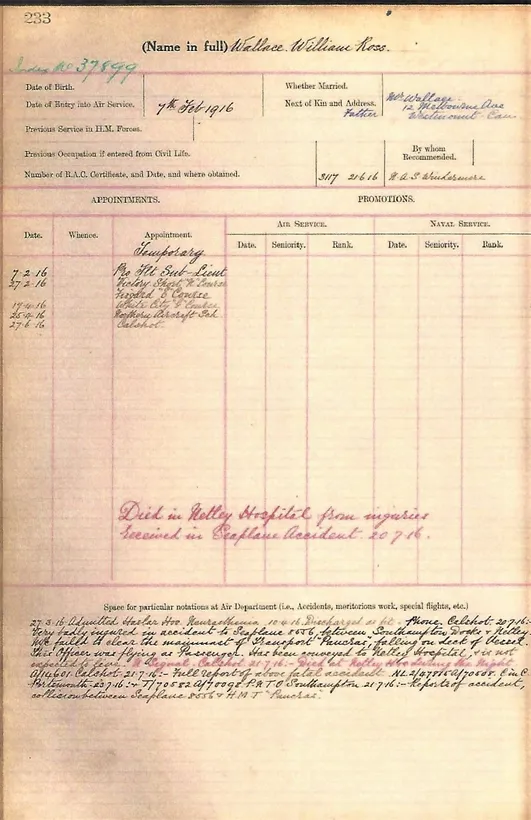 233
(Name in full) Wallace. William Ross.
Index No 37899
Date of Birth.
Whether Married.
Date of Entry into Air Service. 7th Feb 1916
Next of Kin and Address. Mr Wallace.
Father 12 Melbourne Ave
Westmount Can
Previous Service in H.M. Forces.
Previous Occupation if entered from Civil Life.
By whom Recommended.
Number of R.A.C. Certificate, and Date, and where obtained. 3117 21 6 16 N.A.S. Windermere
APPOINTMENTS. PROMOTIONS.
AIR SERVICE. NAVAL SERVICE.
Date. Whence. Appointment. Date. Seniority. Rank. Date. Seniority. Rank.
Temporary
7-2-16 Pro Flt Sub-Lieut
27-2-16 Victory Short "N" Course
"G" Course
17-4-16 White City "G" Course
25-4-16 Northern Aircraft Sch
27-6-16 Calshot.
Died in Netley Hospital from injuries
received in Seaplane Accident. 20.7.16.
Space for particular notations at Air Department (i.e., Accidents, meritorious work, special flights, etc.)
27.3.16 Admitted Haslar Hos. Neurasthenia. 10.4.16 Discharged as fit. Phone. Calshot. 20.7.16:-
Very badly injured in accident to Seaplane 8056, between Southampton Docks & Netley
failed to clear the mainmast of Transport "Pancras", falling on deck of Vessel
This Officer was flying as Passenger. Has been conveyed to Netley Hospital, & is not
expected to live. Signal. Calshot 21.7.16:- Died at Netley Hos during the night
Calshot. 21.7.16:- Full report of above fatal accident. C in C
Portsmouth P.N.T.O Southampton 21.7.16:- Reports of accident,
collision between Seaplane 8056 & H.M.T "Pancras".